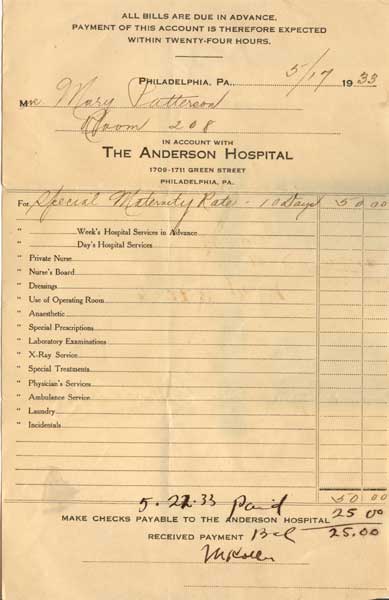 ALL BILLS ARE DUE IN ADVANCE.
PAYMENT OF THIS ACCOUNT IS THEREFORE EXPECTED
WITHIN TWENTY-FOUR HOURS.
PHILADELPHIA, PA. 5/17 1933
M Mary Patterson
Room 208
IN ACCOUNT WITH
THE ANDERSON HOSPITAL
1709-1711 GREEN STREET
PHILADELPHIA, PA.
For Special Maternity Rate - 10 Days 50 00
" Week's Hospital Services in Advance
" Day's Hospital Services
" Private Nurse
" Nurse's Board
" Dressings
" Use of Operating Room
" Anaesthetic
" Special Prescriptions
" Laboratory Examinations
" X-Ray Service
" Special Treatments
" Physician's Services
" Ambulance Service
" Laundry
" Incidentals
50 00
5.22.33 Paid 25 00
MAKE CHECKS PAYABLE TO THE ANDERSON HOSPITAL
RECEIVED PAYMENT Bal 25.00